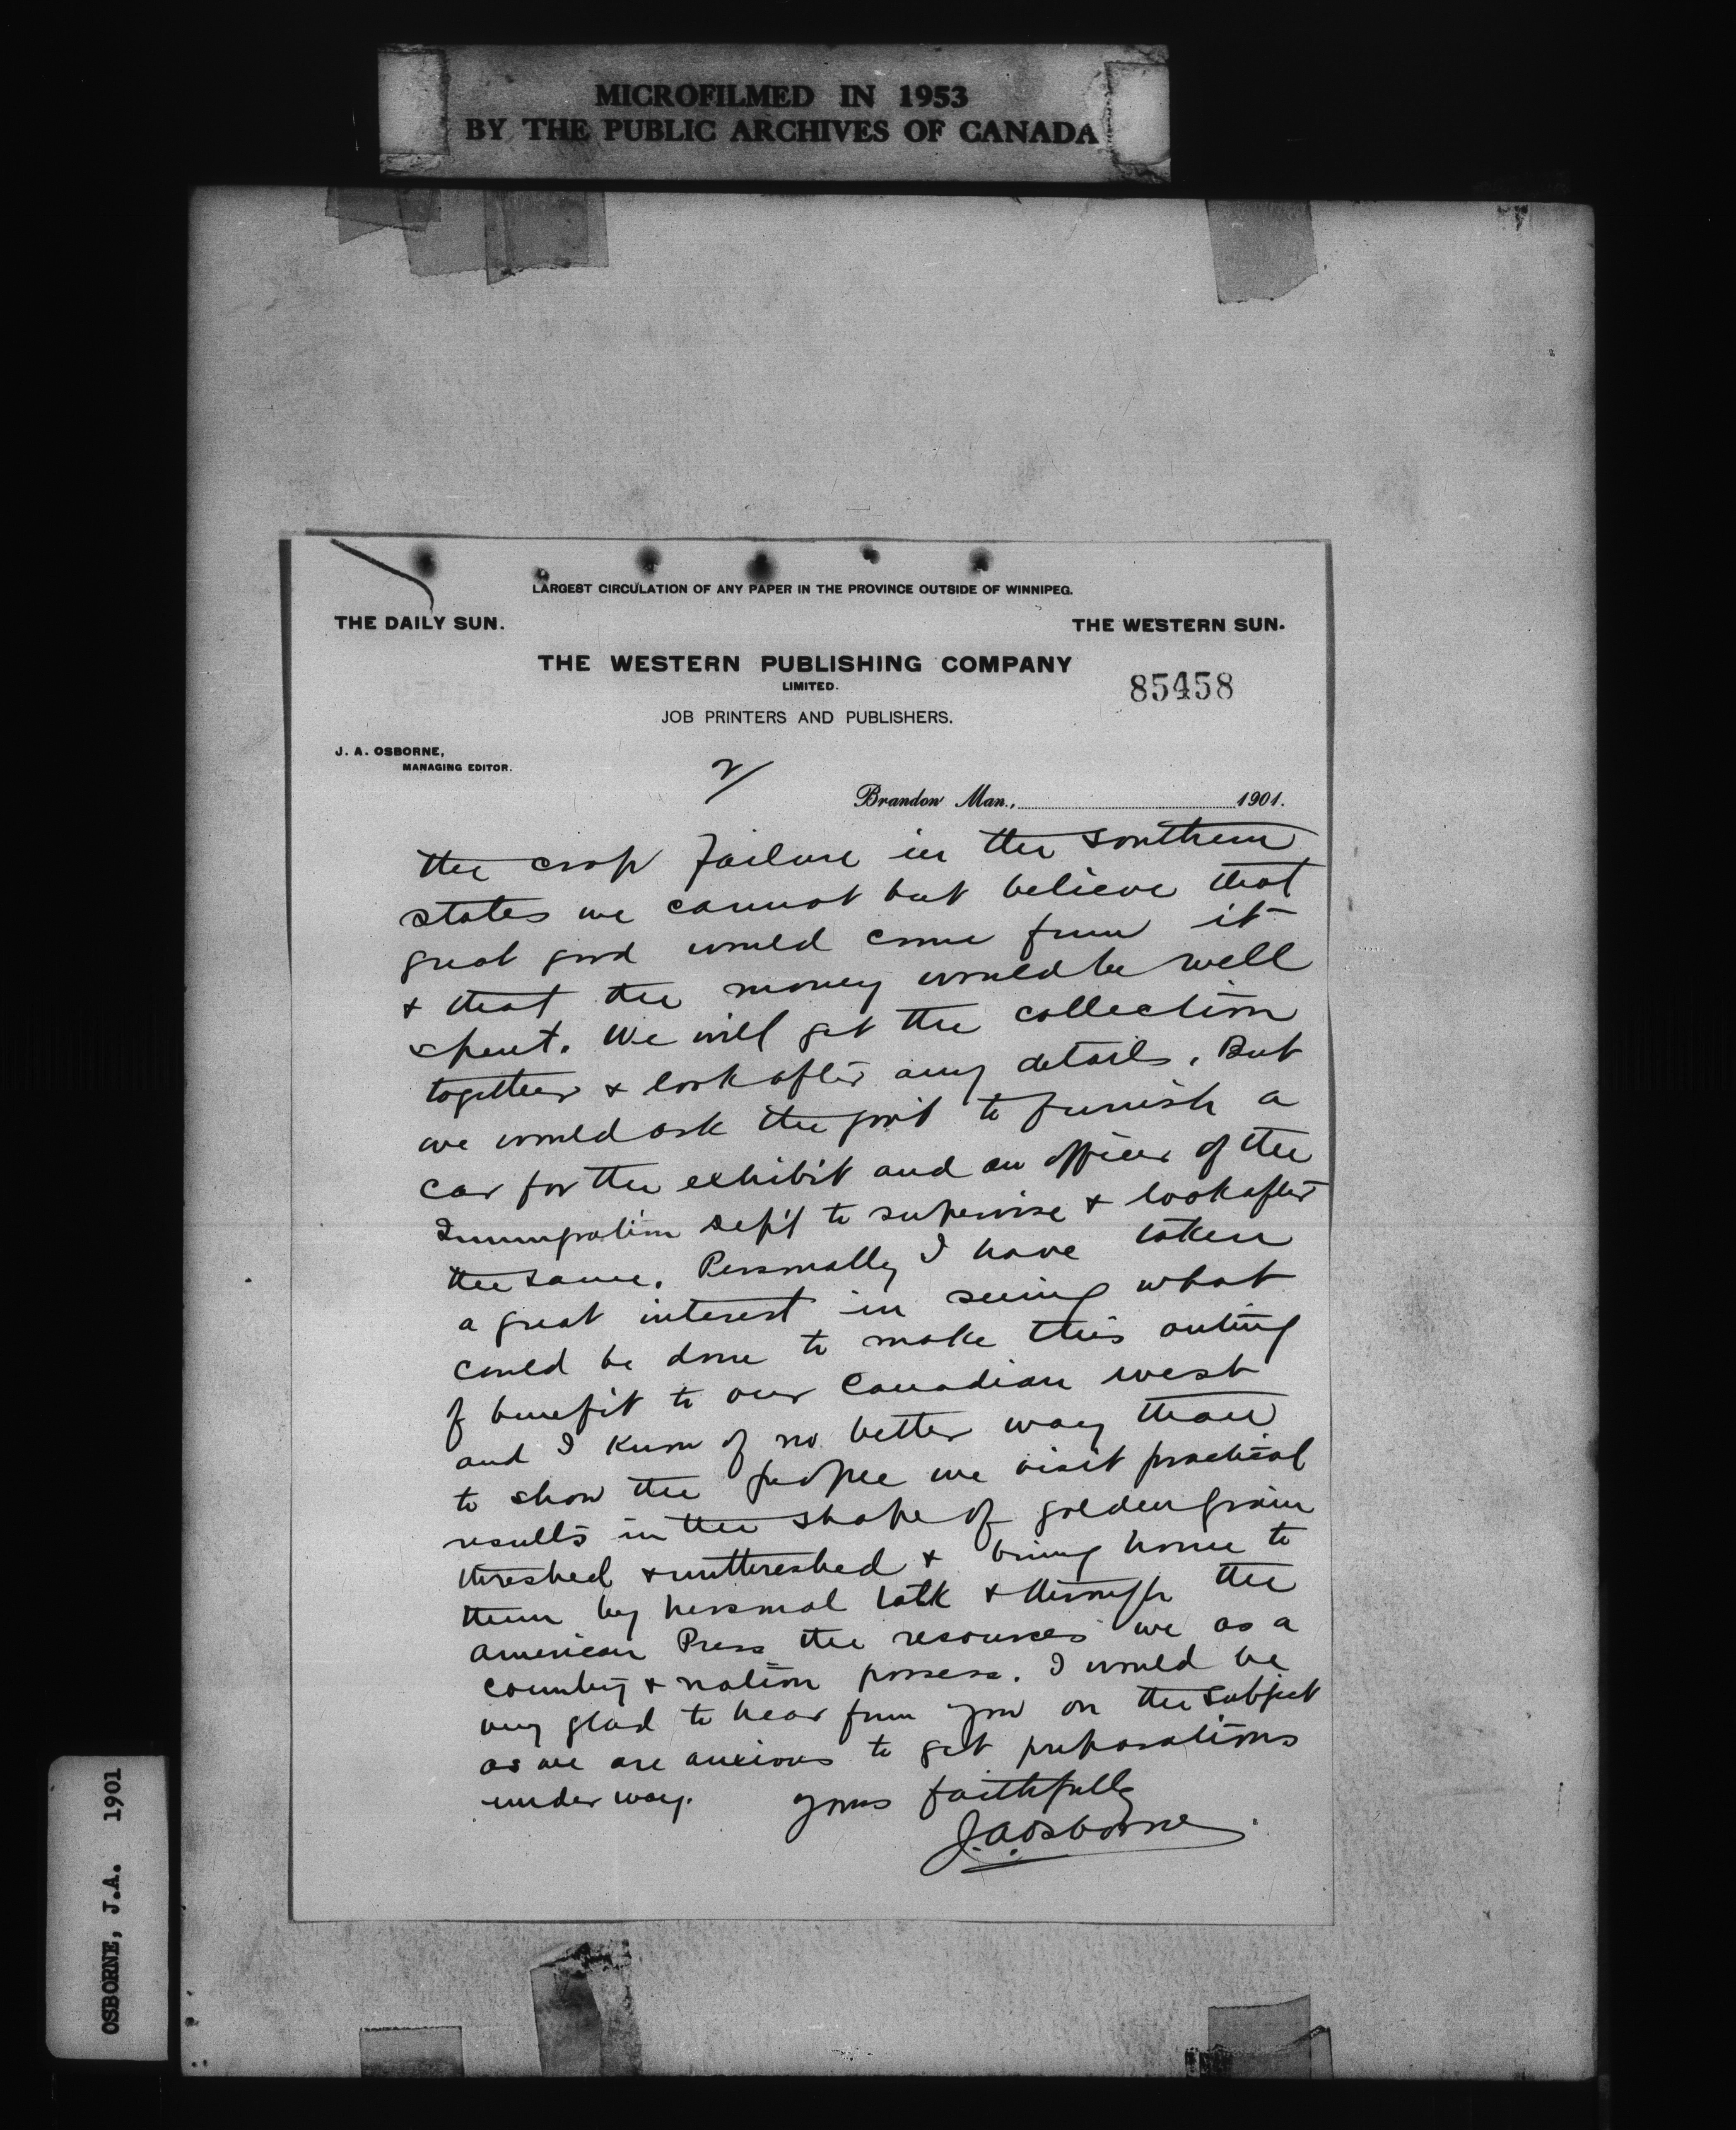 MICROFILMED IN 1953
BY THE PUBLIC ARCHIVES OF CANADA
LARGEST CIRCULATION OF ANY PAPER IN THE PROVINCE OUTSIDE OF WINNIPEG.
THE DAILY SUN.
THE WESTERN SUN.
THE WESTERN PUBLISHING COMPANY
LIMITED.
85458
JOB PRINTERS AND PUBLISHERS.
J. A. OSBORNE,
MANAGING EDITOR.
2/
Brandon Man., 1901.
the crop failure in the southern
states we cannot but believe that
great good would come from it
& that the money would be well
spent. We will get the collection
together & look after any details. But
we would ask the gov't to furnish a
car for the exhibit and an officer of the
Immigration Dep't to supervise & look after
the same. Personally I have taken
a great interest in seeing what
could be done to make this outing
of benefit to our Canadian west
and I know of no better way than
to show the people we visit practical
results in the shape of golden grain
threshed & unthreshed & bring home to
them by personal talk & through the
American Press the resources we as a
country & nation possess. I would be
very glad to hear from you on the subject
as we are anxious to get preparations
under way. Yours faithfully
J. A. Osborne
OSBORNE, J.A. 1901